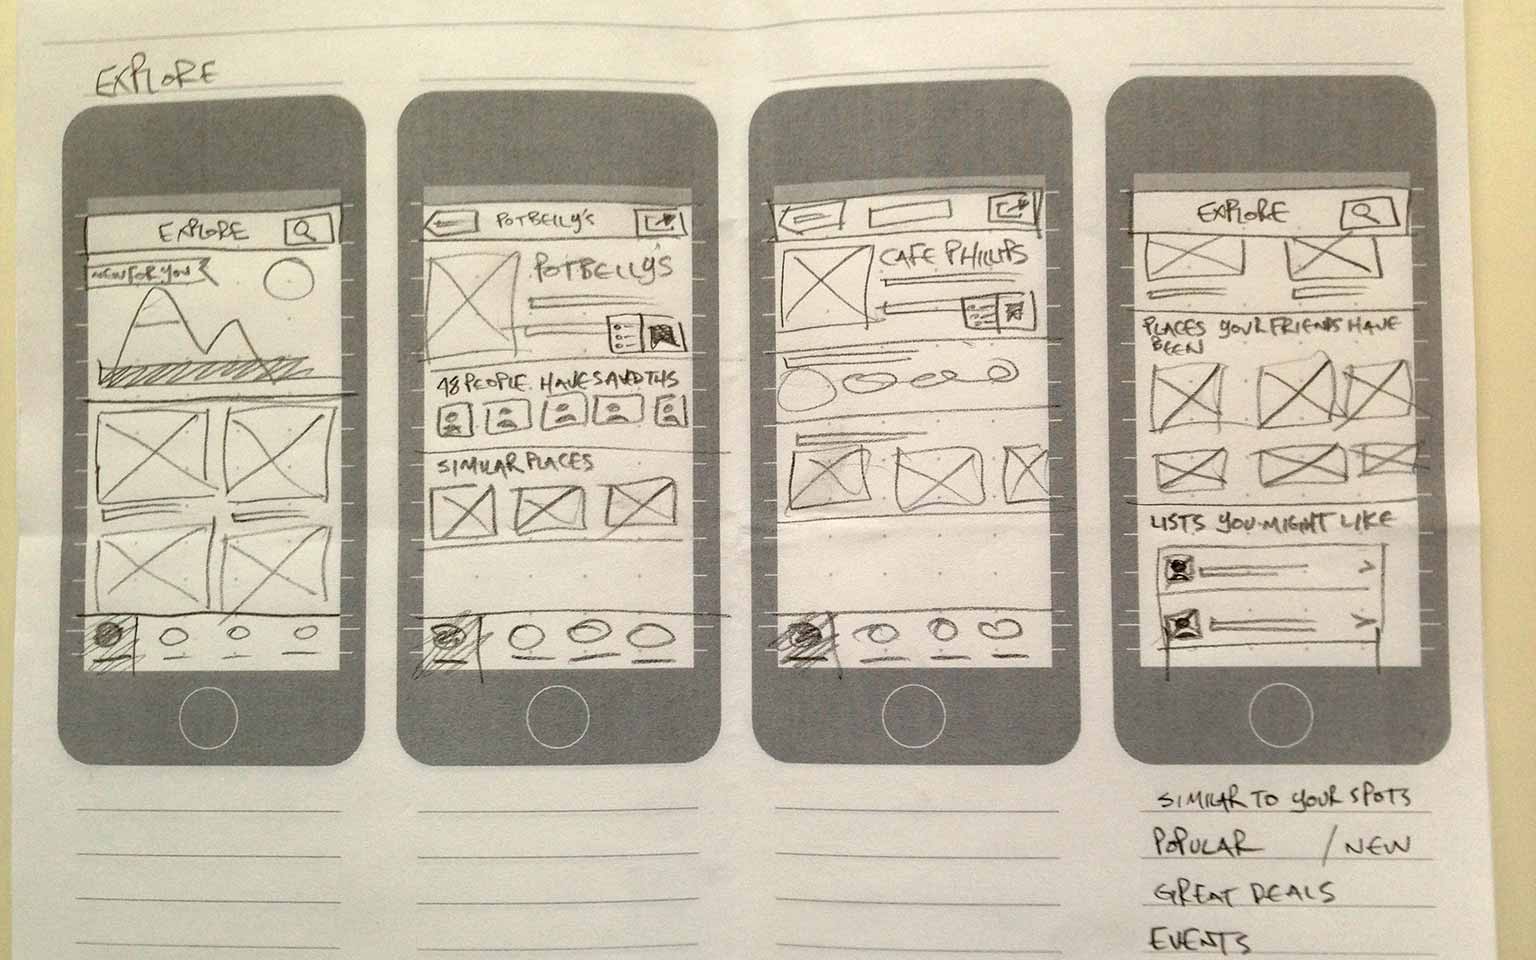 EXPLORE
EXPLORE
NEW FOR YOU
POTBELLY'S
POTBELLY'S
48 PEOPLE HAVE SAVED THIS
SIMILAR PLACES
CAFE PHILLIPS
EXPLORE
PLACES YOUR FRIENDS HAVE
BEEN
LISTS YOU MIGHT LIKE
SIMILAR TO YOUR SPOTS
POPULAR / NEW
GREAT DEALS
EVENTS